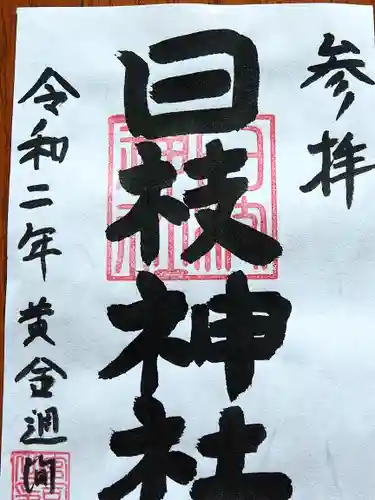 参拝
日枝神社
令和二年黄金週間